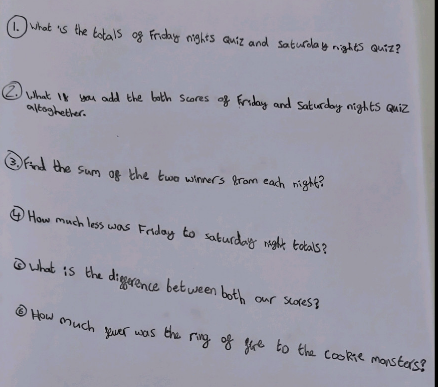 1. What is the totals of Friday nights Quiz and saturday nights Quiz?
2. What is you add the both scores of Friday and Saturday nights Quiz
altoghether.
3. Find the sum of the two winners from each night?
4 How much less was Friday to saturday night totals?
6 What is the difference between both our scores?
6 How much fewer was the ring of fire to the cookie monsters?